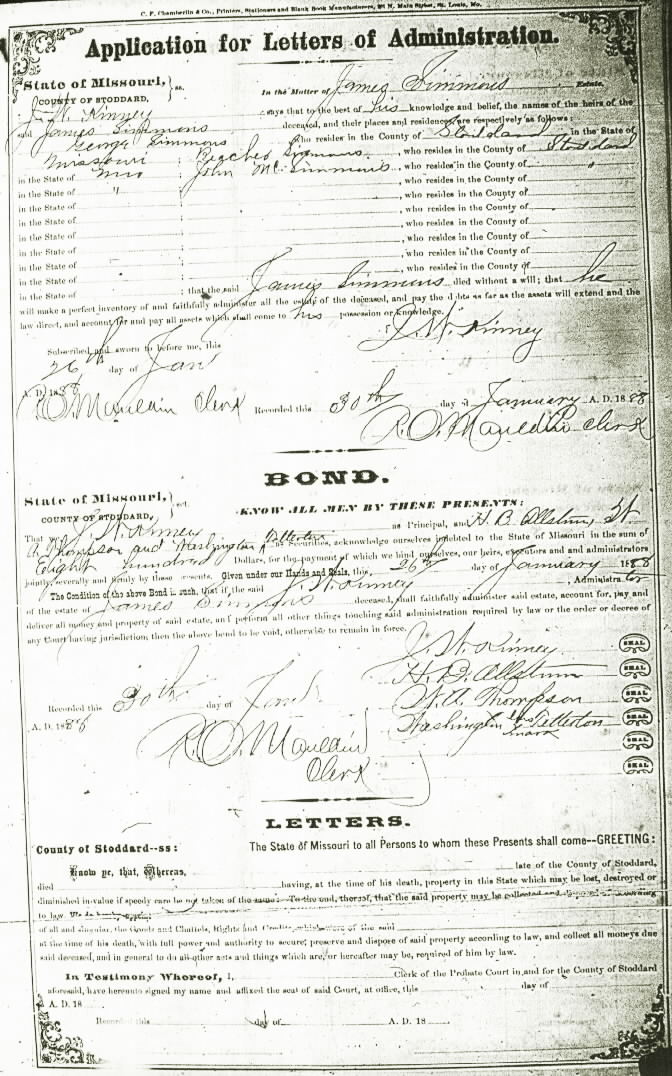 C. F. Chamberlin & Co., Printers, Stationers and Blank Book Manufacturers, N. Main Street, St. Louis, Mo.
Application for Letters of Administration.
State of Missouri, } ss.
COUNTY OF STODDARD,
In the Matter of James Simmons Estate,
J. W. Kinney
says that to the best of his knowledge and belief, the names of the heirs of the
said James Simmons deceased, and their places and residences are respectively as follows:
George Simmons who resides in the County of Stoddard, in the State of
Missouri ; Simmons, who resides in the County of Stoddard
in the State of Mo ; John Mc Simmons, who resides in the County of "
in the State of " ; , who resides in the County of
in the State of ; , who resides in the County of
in the State of ; , who resides in the County of
in the State of ; , who resides in the County of
in the State of ; , who resides in the County of
in the State of ; , who resides in the County of
in the State of ; , who resides in the County of
in the State of ; that the said James Simmons died without a will; that he
will make a perfect inventory of and faithfully administer all the estate of the deceased, and pay the debts as far as the assets will extend and the
law direct, and account for and pay all assets which shall come to his possession or knowledge.
J. W. Kinney
Subscribed and sworn to before me, this
26th day of Jan
A. D. 188
R. O. Mauldin Clerk
Recorded this 30th day of January A. D. 1888
R. O. Mauldin Clerk
BOND.
State of Missouri, } sct.
COUNTY OF STODDARD,
KNOW ALL MEN BY THESE PRESENTS:
That we J. W. Kinney as Principal, and H. B. Allstun, W.
A. Thompson and Washington Tetterton as Securities, acknowledge ourselves indebted to the State of Missouri in the sum of
Eight hundred Dollars, for the payment of which we bind ourselves, our heirs, executors and administrators
jointly, severally and firmly by these presents. Given under our Hands and Seals, this 26th day of January 1888
The Condition of the above Bond is such, that if the said J. W. Kinney, Administrator
of the estate of James Simmons deceased, shall faithfully administer said estate, account for, pay and
deliver all money and property of said estate, and perform all other things touching said administration required by law or the order or decree of
any Court having jurisdiction, then the above bond to be void, otherwise to remain in force.
J. W. Kinney SEAL
H. B. Allstun SEAL
W. A. Thompson SEAL
Washington his Tetterton SEAL
mark
SEAL
SEAL
Recorded this 30th day of Jan
A. D. 188
R. O. Mauldin
Clerk
LETTERS.
County of Stoddard--ss:
The State of Missouri to all Persons to whom these Presents shall come--GREETING:
Know ye, that, Whereas, late of the County of Stoddard,
died having, at the time of his death, property in this State which may be lost, destroyed or
diminished in value if speedy care be not taken of the same: To the end, thereof, that the said property may be collected and disposed of according
to law. We do hereby appoint
of all and singular, the Goods and Chattels, Rights and Credits, which were of the said
at the time of his death, with full power and authority to secure, preserve and dispose of said property according to law, and collect all moneys due
said deceased, and in general to do all other acts and things which are, or hereafter may be, required of him by law.
In Testimony Whereof, I, Clerk of the Probate Court in and for the County of Stoddard
aforesaid, have hereunto signed my name and affixed the seal of said Court, at office, this day of
A. D. 18
Recorded this day of A. D. 18